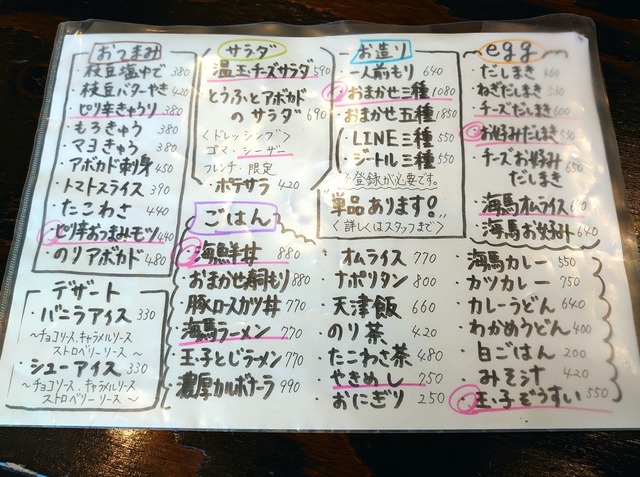 おつまみ
・枝豆塩ゆで 380
・枝豆バターやき 420
・ピリ辛きゅうり 380
・もろきゅう 380
・マヨきゅう 380
・アボカド刺身 450
・トマトスライス 390
・たこわさ 440
・ピリ辛おつまみモツ 440
・のりアボカド 480
デザート
・バニラアイス 330
〜チョコソース、キャラメルソース
ストロベリーソース〜
・シューアイス 330
〜チョコソース、キャラメルソース
ストロベリーソース〜
サラダ
・温玉チーズサラダ 590
・とうふとアボカド
のサラダ 690
〈ドレッシング〉
ゴマ・シーザー
フレンチ・限定
・ポテサラ 420
お造り
・一人前もり 640
・おまかせ三種 1080
・おまかせ五種 1850
・LINE三種 550
・ジートル三種 550
登録が必要です。
単品あります!
〈詳しくはスタッフまで〉
egg
・だしまき 460
・ねぎだしまき 530
・チーズだしまき 600
・お好みだしまき 530
・チーズお好み
だしまき 650
・海馬オムライス 640
・海馬お好み 640
ごはん
・海鮮丼 880
・おまかせ寿司もり 880
・豚ロースカツ丼 770
・海馬ラーメン 770
・玉子とじラーメン 770
・濃厚カルボナーラ 990
・オムライス 770
・ナポリタン 800
・天津飯 660
・のり茶 420
・たこわさ茶 480
・やきめし 750
・おにぎり 250
・海馬カレー 550
・カツカレー 750
・カレーうどん 640
・わかめうどん 400
・白ごはん 200
・みそ汁 420
・玉子ぞうすい 550